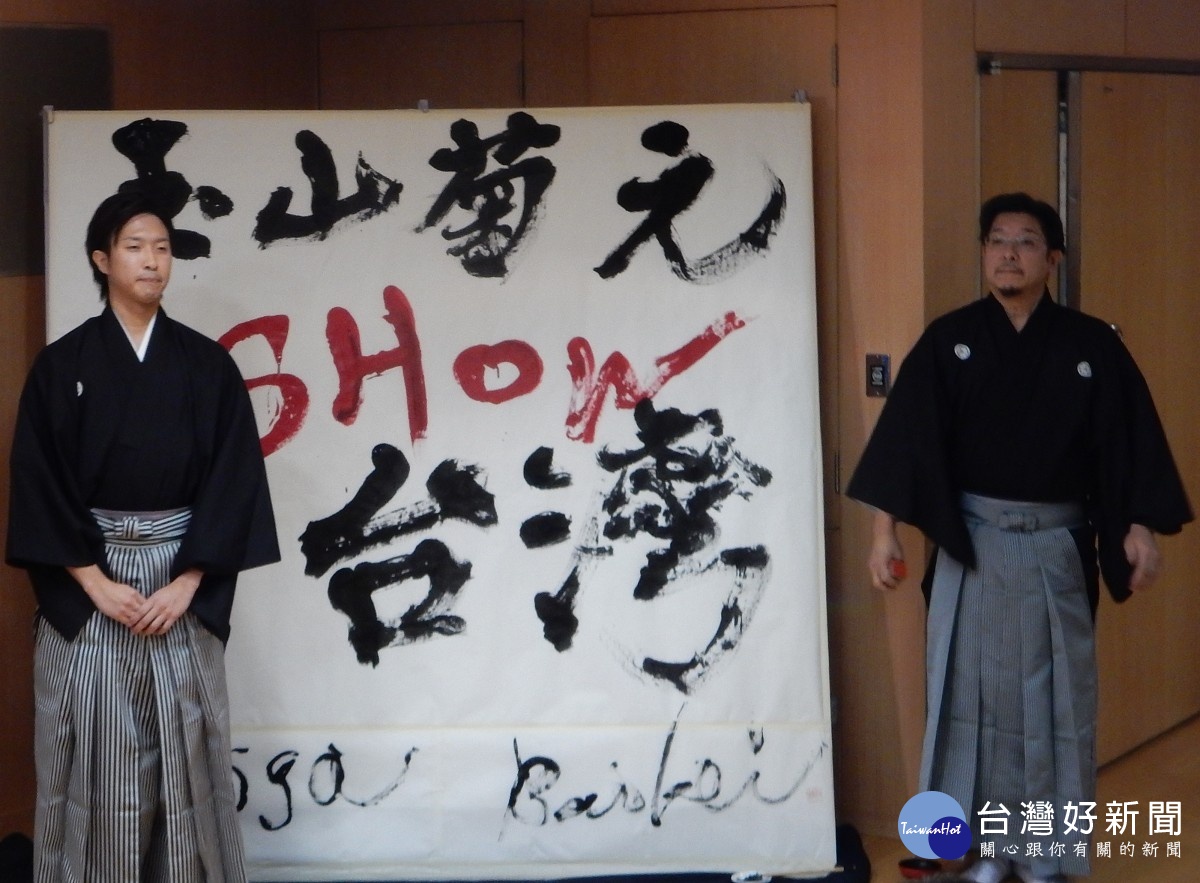 玉山菊元
SHOW
台灣
Baikei
TaiwanHot
台灣好新聞
關心跟你有關的新聞